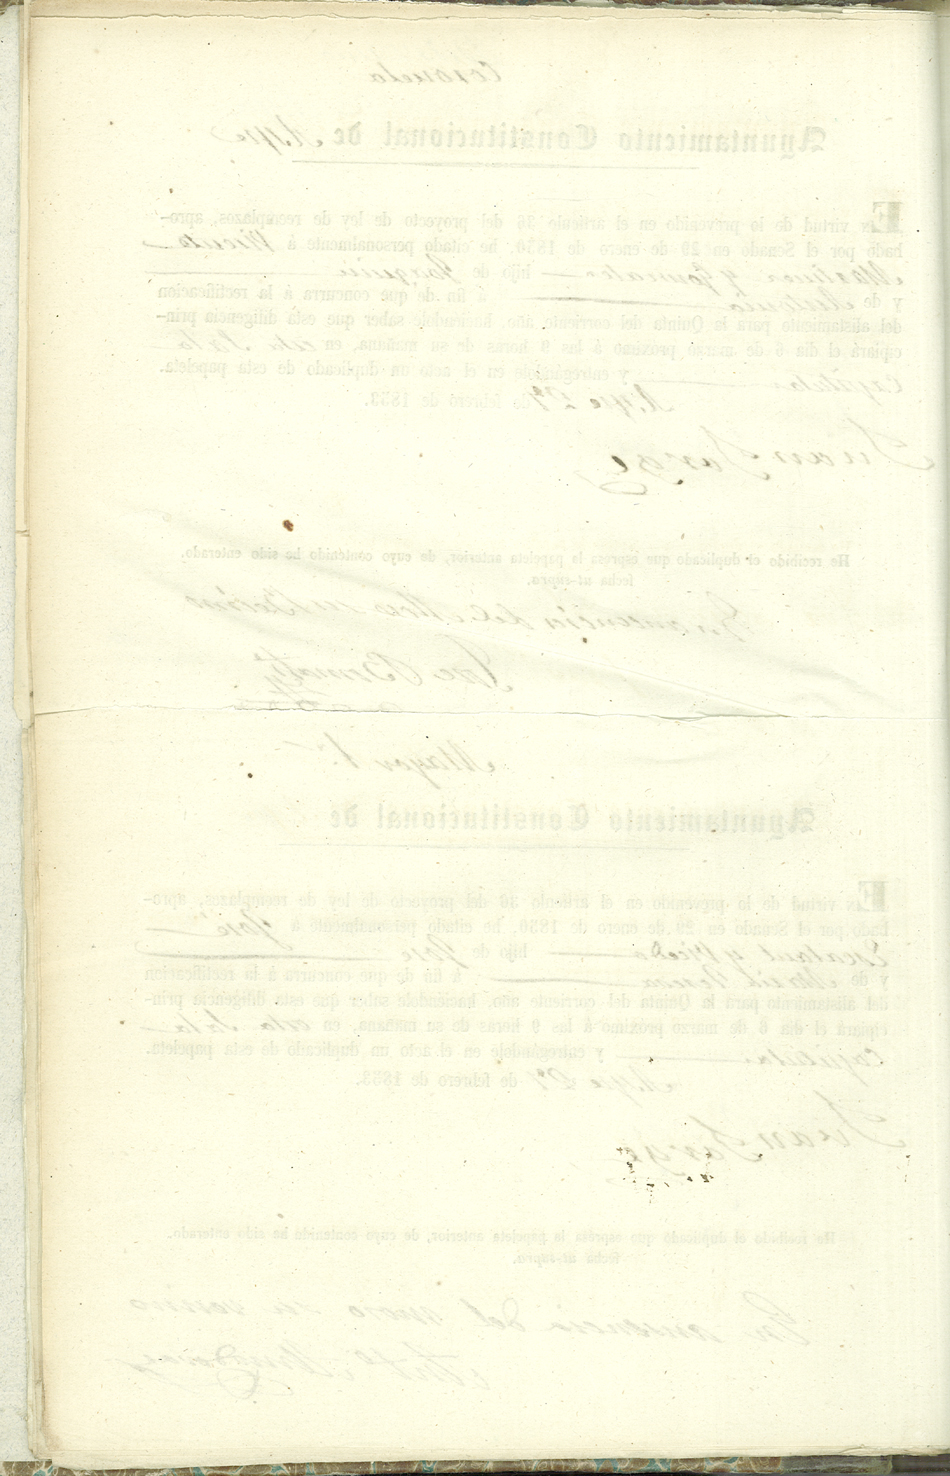 Coronela
Ayuntamiento Constitucional de Aspe
EN virtud de lo prevenido en el artículo 36 del proyecto de ley de reemplazos, apro-
bado por el Senado en 29 de enero de 1850, he citado personalmente á Vicente
Martinez y Gonzalez hijo de Joaquin
y de Antonia á fin de que concurra á la rectificacion
del alistamiento para la Quinta del corriente año, haciéndole saber que esta diligencia prin-
cipiará el dia 6 de marzo próximo á las 9 horas de su mañana, en esta Sala
Capitular y entregándole en el acto un duplicado de esta papeleta.
Aspe 27 de febrero de 1853.
Juan
He recibido el duplicado que espresa la papeleta anterior, de cuyo contenido he sido enterado.
fecha ut-supra.
En ausencia del Mozo su Vecino
José
Mayor 1.
Ayuntamiento Constitucional de
EN virtud de lo prevenido en el artículo 36 del proyecto de ley de reemplazos, apro-
bado por el Senado en 29 de enero de 1850, he citado personalmente á José
y hijo de José
y de Maria Teresa á fin de que concurra á la rectificacion
del alistamiento para la Quinta del corriente año, haciéndole saber que esta diligencia prin-
cipiará el dia 6 de marzo próximo á las 9 horas de su mañana, en esta Sala
Capitular y entregándole en el acto un duplicado de esta papeleta.
Aspe 27 de febrero de 1853.
Juan
He recibido el duplicado que espresa la papeleta anterior, de cuyo contenido he sido enterado.
fecha ut-supra.
En ausencia del mozo su vecino